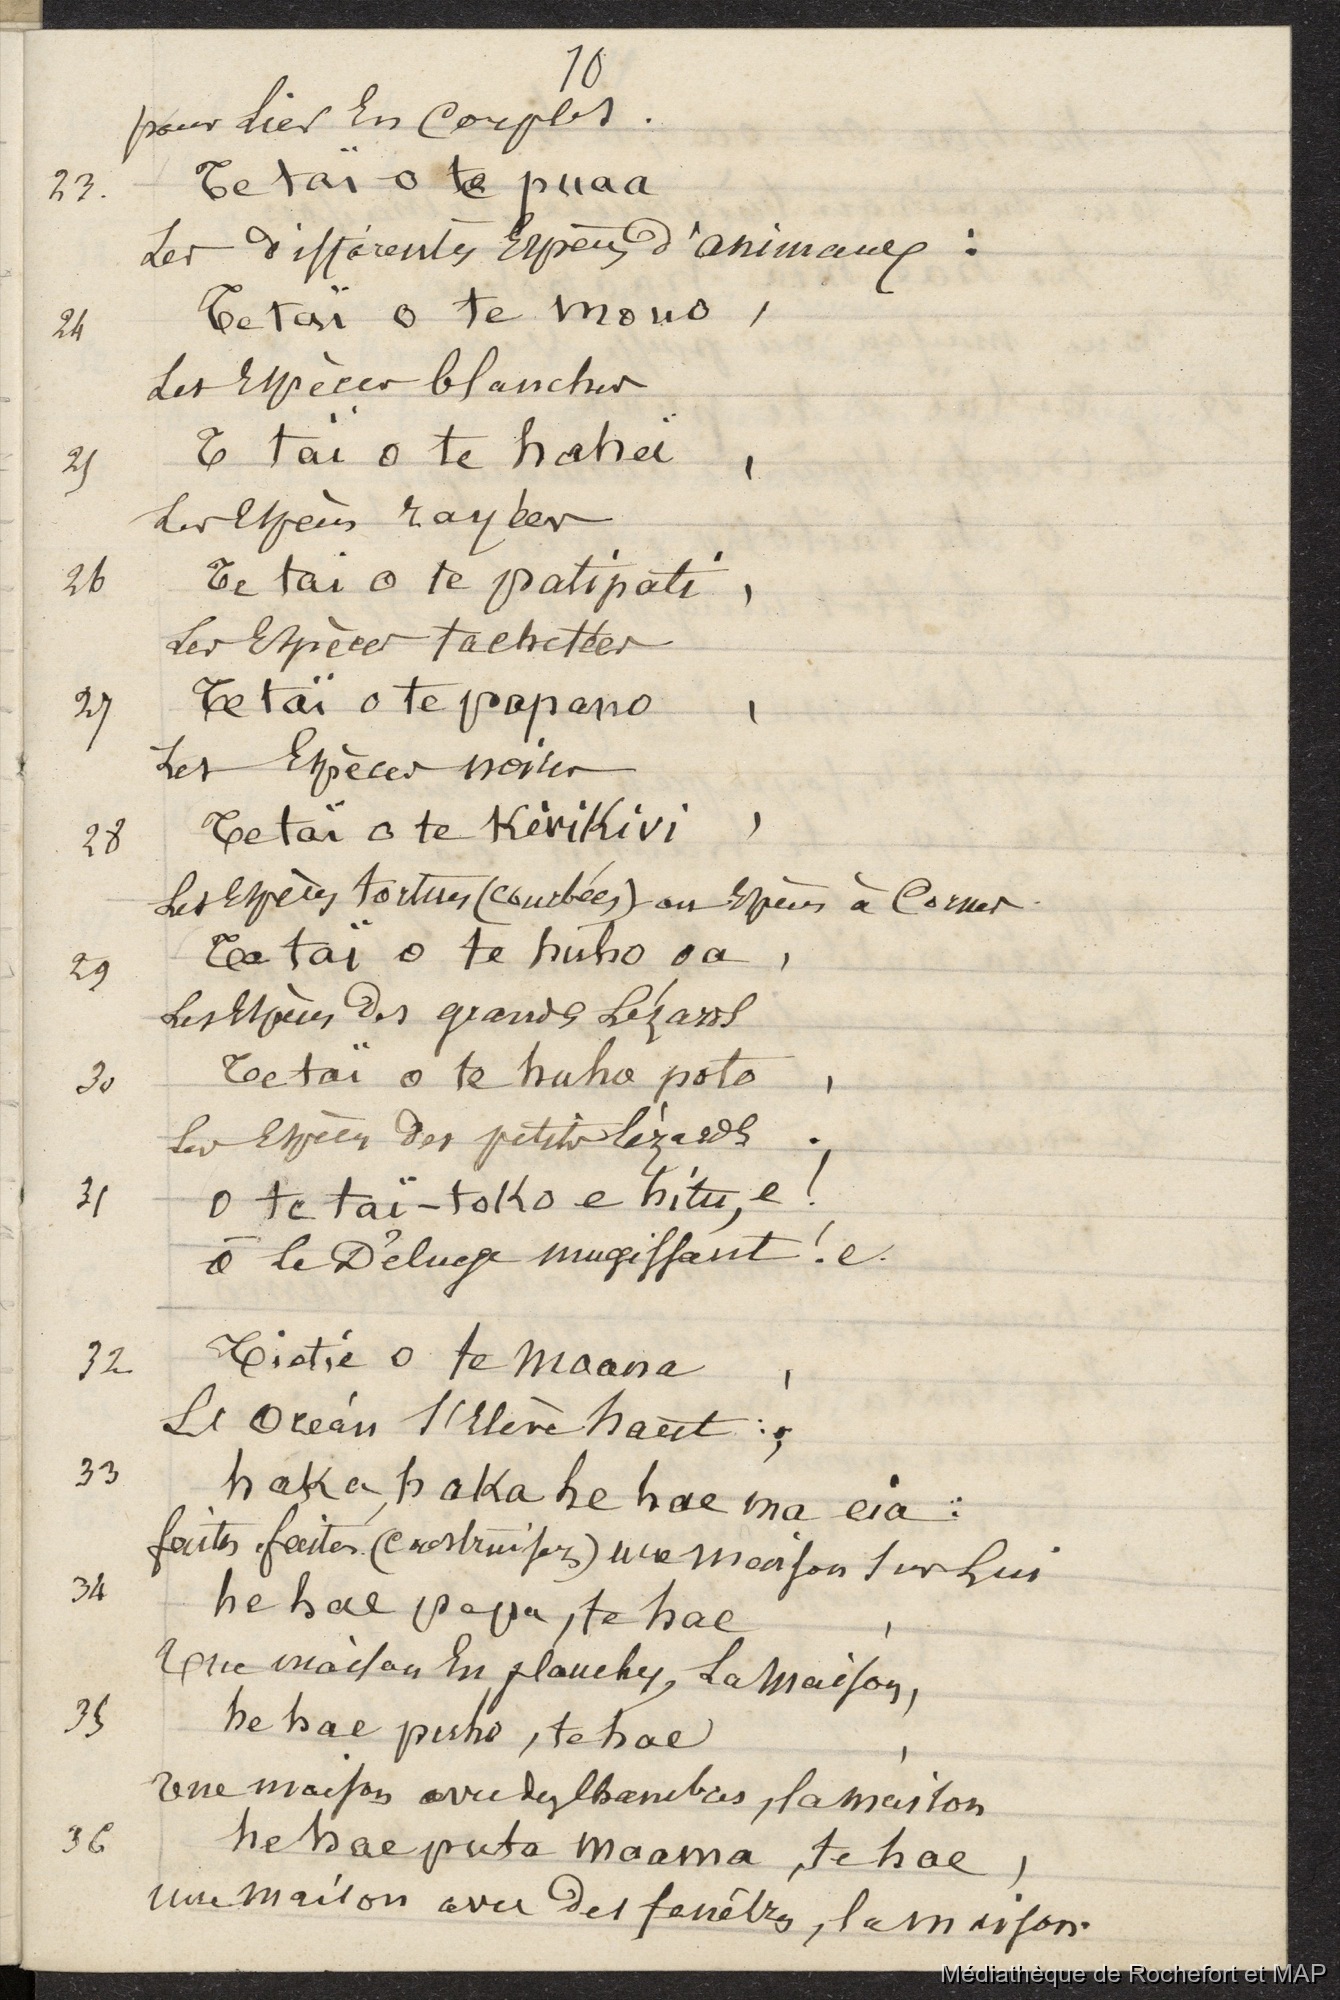 10
pour Lier En Couples.
23. Te taï o te puaa
Les différentes Espèces d'animaux :
24 Te taï o te mouo ,
Les Espèces blanches
25 T taï o te haheï ,
Les Espèces rayées
26 Te tai o te patipati ,
Les Espèces tachetées
27 Te taï o te papano ,
Les Espèces noires
28 Te taï o te KiviKivi ,
Les Espèces tortues (courbées) ou Espèces à Cornes
29 Te taï o te huho oa ,
Les Espèces des grands Lézards
30 Te taï o te huho poto ,
Les Espèces des petits lézards .
31 o te taï-toKo e hitu, e !
ō le Déluge mugissant ! e.
32 Tietie o te Moana ,
Le Océan s'Elève haut :,
33 haKa, haKa he hae ma eia :
faites, faites (construisez) une Maison sur Lui
34 he hae papa, te hae ,
Une maison En planches, La Maison,
35 he hae puho, te hae ,
Une maison avec des chambres, la maison
36 he hae puta Maama, te hae ,
une Maison avec Des fenêtres, la maison.
Médiathèque de Rochefort et MAP